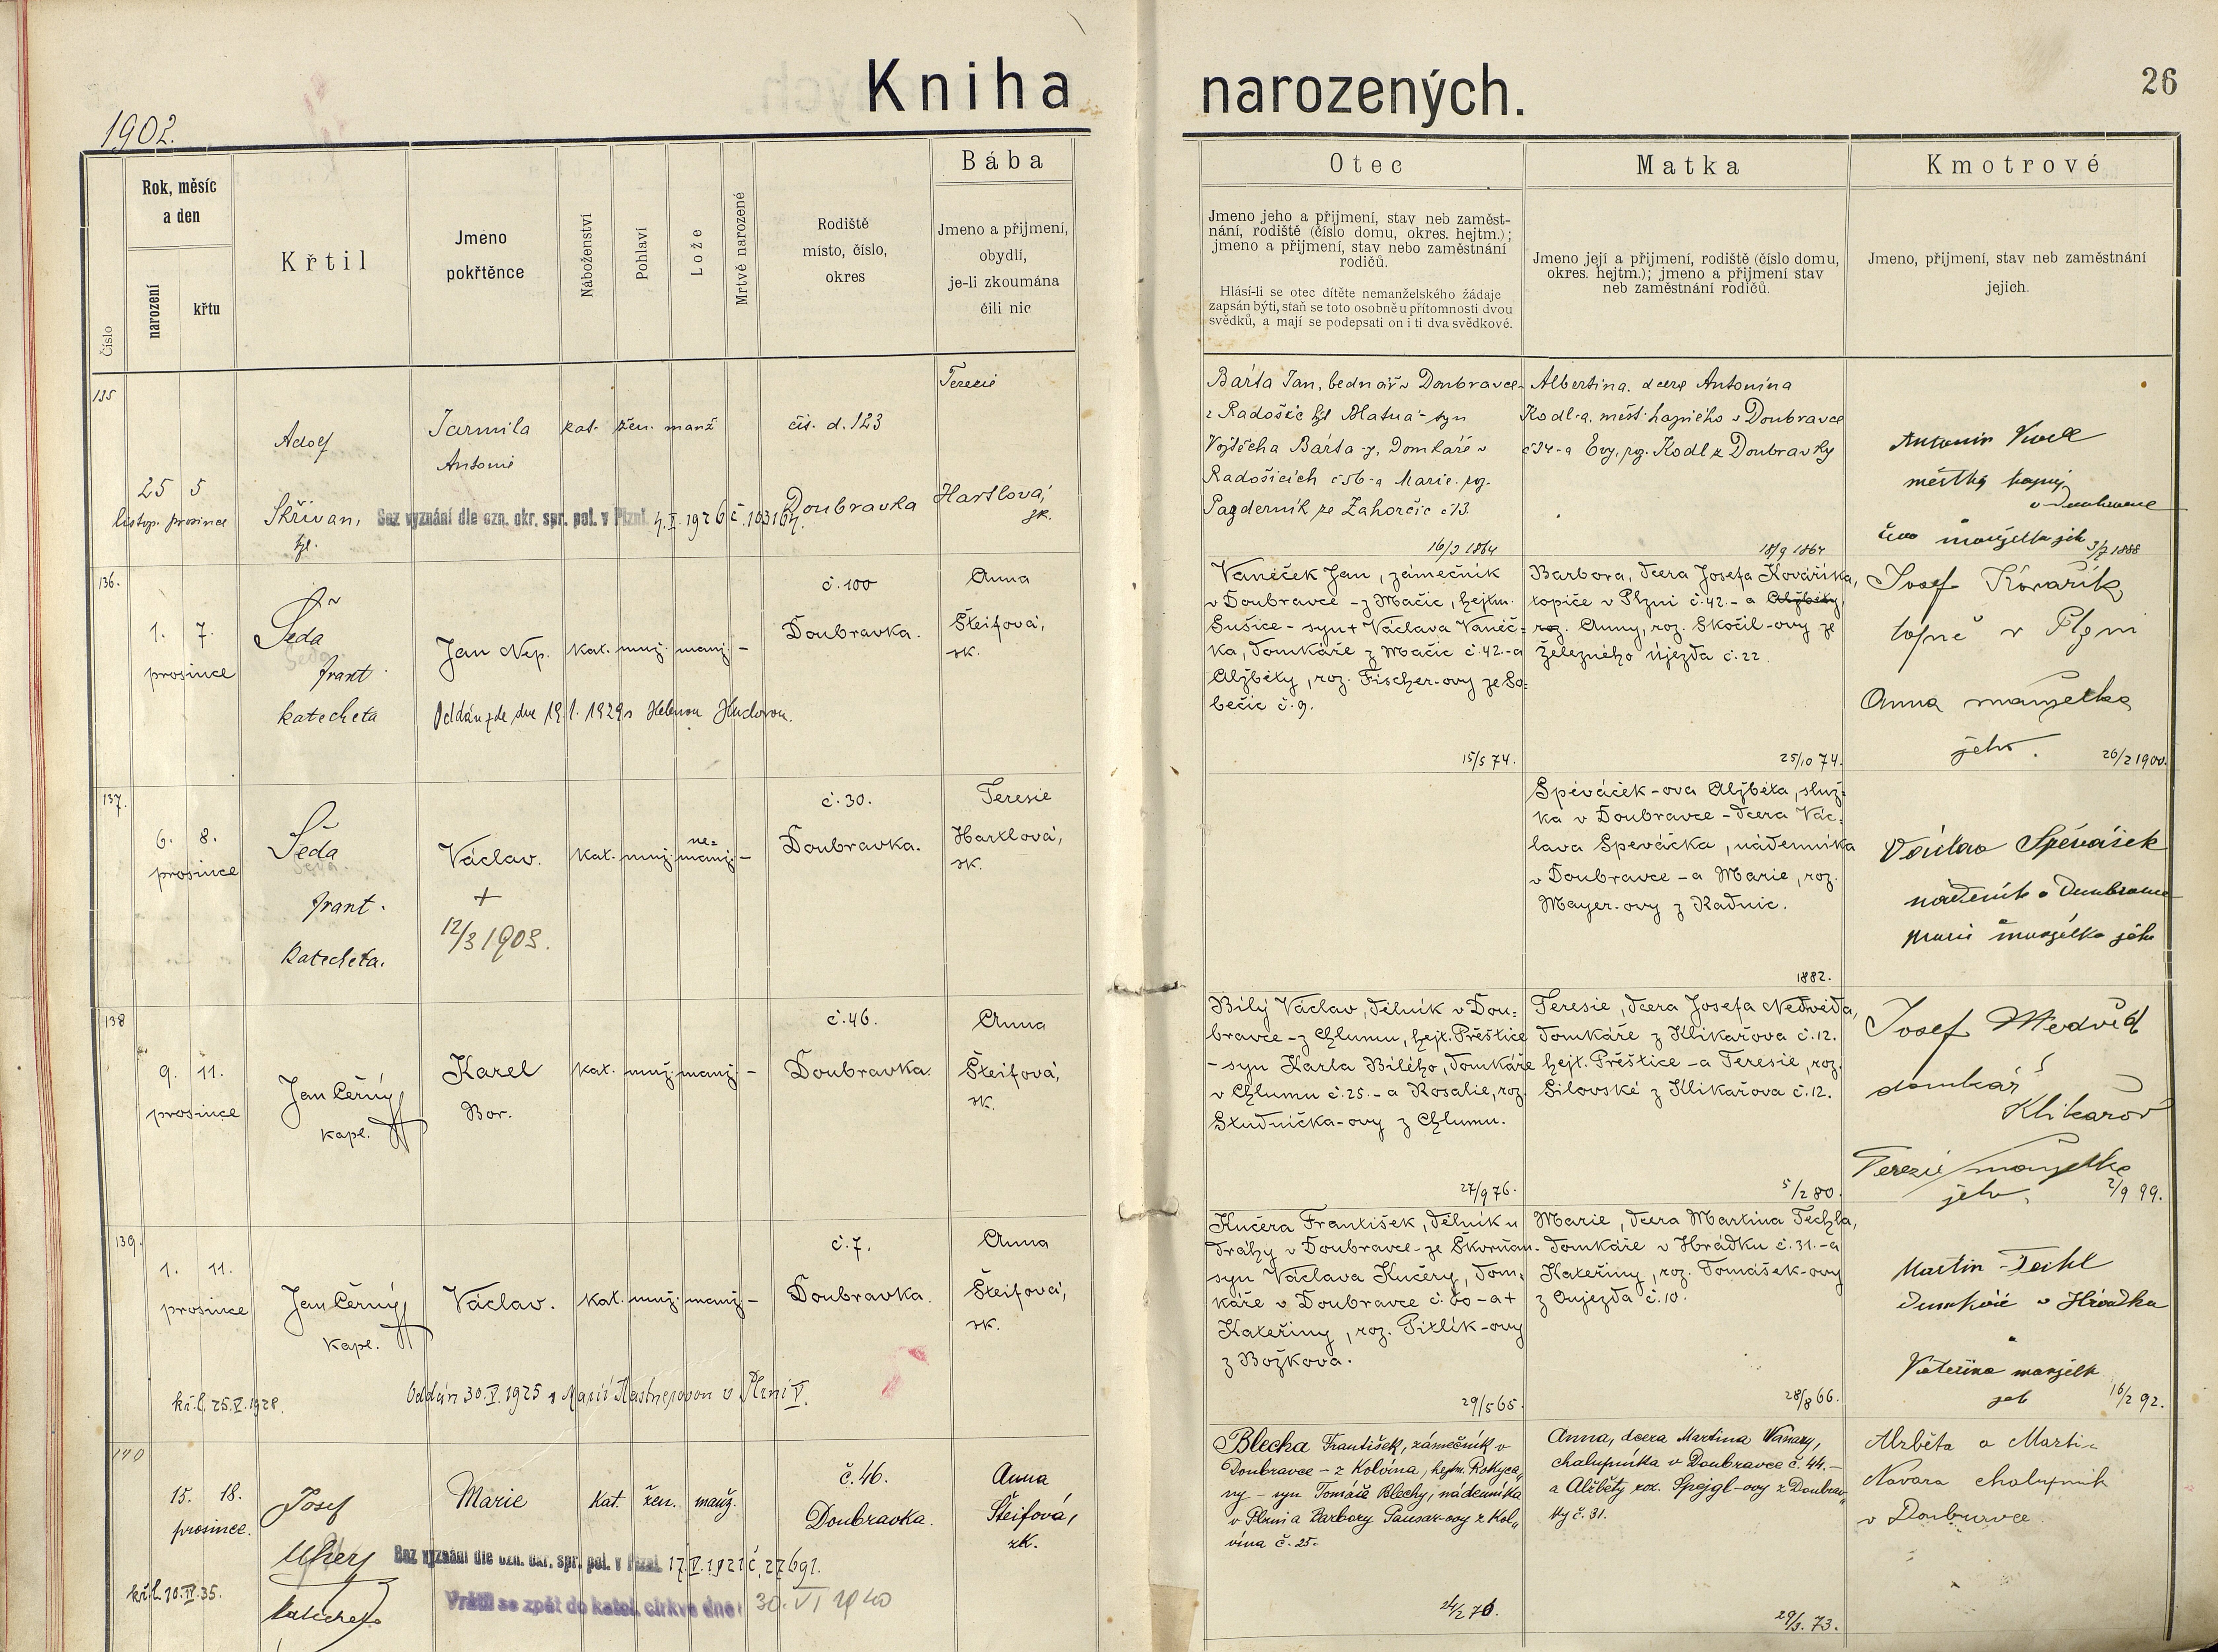 Kniha narozených.
26
1902.
Číslo
Rok, měsíc
a den
narození
křtu
Křtil
Jmeno
pokřtěnce
Náboženství
Pohlaví
Lože
Mrtvě narozené
Rodiště
místo, číslo,
okres
Bába
Jmeno a přijmení,
obydlí,
je-li zkoumána
čili nic
Otec
Jmeno jeho a přijmení, stav neb zaměst-
nání, rodiště (číslo domu, okres. hejtm.);
jmeno a přijmení, stav nebo zaměstnání
rodičů.
Hlásí-li se otec dítěte nemanželského žádaje
zapsán býti, staň se toto osobně u přítomnosti dvou
svědků, a mají se podepsati on i ti dva svědkové.
Matka
Jmeno její a přijmení, rodiště (číslo domu,
okres. hejtm.); jmeno a přijmení stav
neb zaměstnání rodičů.
Kmotrové
Jmeno, přijmení, stav neb zaměstnání
jejich.
135
25 5
listop. prosince
Adolf
Skřivan,
Jarmila
Antonie
kat. žen. manž
čís. d. 123
Doubravka
Terezie
Hartlová,
zk.
Bez vyznání dle ozn. okr. spr. pol. v Plzni 4.I.1926 č. 103164.
Bárta Jan, bednář v Doubravce
z Radošic syn
Vojtěcha Bárta-y, Domkáře v
Radošicích č 56-a Marie roz.
Pazderník ze Zahorčic č 13.
16/3 1864
Albertina, dcera Antonína
Kodl-a, měst. hajného v Doubravce
č 34-a Evy, roz. Kodl z Doubravky
18/9 1864
Antonín
městký hajný
v Doubravce
manželka jeh
3/7 1888
136.
1. 7.
prosince
Šeda
frant
katecheta
Jan Nep.
kat. muž. manž. -
č. 100
Doubravka.
Anna
Šteifová,
zk.
Oddán zde dne 19.1.1929 s Helenou Hudovou.
Vaněček Jan, zámečník
v Doubravce - z Mačic, hejtm.
Sušice - syn + Václava Vaněč-
ka, domkáře z Mačic č. 42.-a
Alžběty, roz. Fischer-ovy ze So-
běčic č. 9.
15/5 74.
Barbora, dcera Josefa Kováříka,
topiče v Plzni č. 42.- a Alžběty,
roz. Anny, roz. Skočil-ovy ze
Železného Újezda č. 22.
25/10 74.
Josef Kovařík
topič v Plzni
Anna manželka
jeho.
26/2 1900.
137.
6. 8.
prosince
Šeda
frant.
Katecheta.
Václav.
+
12/3 1903.
kat. muž. ne-
manž. -
č. 30.
Doubravka.
Teresie
Hartlová,
zk.
Spěváček-ova Alžběta, služ-
ka v Doubravce - dcera Vác-
lava Speváčka, nádenníka
v Doubravce - a Marie, roz.
Mayer-ovy z Radnic.
1882.
Václav Spěváček
nádeník v Doubravce
Marie manželka jeho
138
9. 11.
prosince
Jan Černý
kapl.
Karel
Bor.
kat. muž. manž. -
č. 46.
Doubravka
Anna
Šteifová,
zk.
Bílý Václav, dělník v Dou-
bravce - z Chlumu, hejt. Přeštice
- syn Karla Bílého, domkáře
v Chlumu č. 25.- a Rosalie, roz.
Studnička-ovy z Chlumu.
27/9 76.
Teresie, dcera Josefa Nedvěda,
domkáře z Klikařova č. 12.
hejt. Přeštice - a Teresie, roz.
Silovské z Klikařova č. 12.
5/2 80.
Josef Medvěd
domkář
Klikařov
Terezie manželka
jeho.
2/9 99.
139.
1. 11.
prosince
Jan Černý
kapl.
Václav.
kat. muž. manž. -
č. 7.
Doubravka.
Anna
Šteifová,
zk.
kř. l. 25.V.1928.
Oddán 30.V.1925 s Marií v Plzni V.
Kučera František, dělník u
dráhy v Doubravce - ze Skvrňan -
syn Václava Kučery, dom-
káře v Doubravce č. 60 - a +
Kateřiny, roz. Pitlík-ovy
z Božkova.
29/5 65.
Marie, dcera Martina Techla,
domkáře v Hrádku č. 31.-a
Kateřiny, roz. Tomášek-ovy
z Oujezda č. 10.
28/8 66.
Martin Techl
domkář v Hrádku
a
Kateřina manželk
jeh
16/2 92.
140
15. 18.
prosince.
kř. l. 20.IV.35.
Josef
Uhery
katecheta
Marie
kat. žen. manž.
č. 46.
Doubravka.
Anna
Šteifová,
zk.
Bez vyznání dle ozn. okr. spr. pol. v Plzni 17.V.1921 č. 27691.
Vrátil se zpět do katol. církve dne: 30. VI 1940
Blecha František, zámečník v
Doubravce - z Kolvína, hejtm. Rokyca-
ny - syn Tomáše Blechy, nádenníka
v Plzni a Barbory Pausar-ovy z Kol-
vína č. 25.
24/2 76.
Anna, dcera Martina Návary,
chalupníka v Doubravce č. 44.-
a Alžběty roz. Špejgl-ovy z Doubrav-
ky č. 31.
29/3. 73.
Alzběta a Martin
Navara chalupnik
v Doubravce